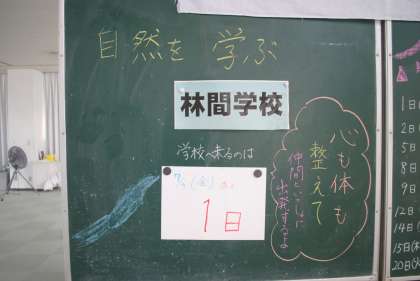 自然を 学ぶ
林間学校
学校へ来るのは
1日
心も体も
整えて
仲間といっしょに
出発するよ
1日
2日
5日
8日
9日
12日
14日
15日
20日